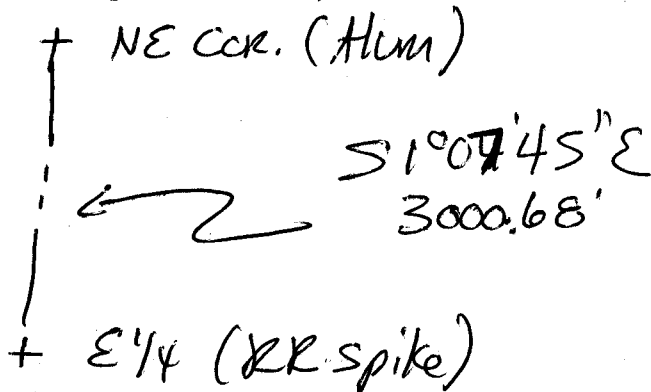 NE COR. (Alum)
S 1°07'45" E
3000.68'
E 1/4 (RR Spike)